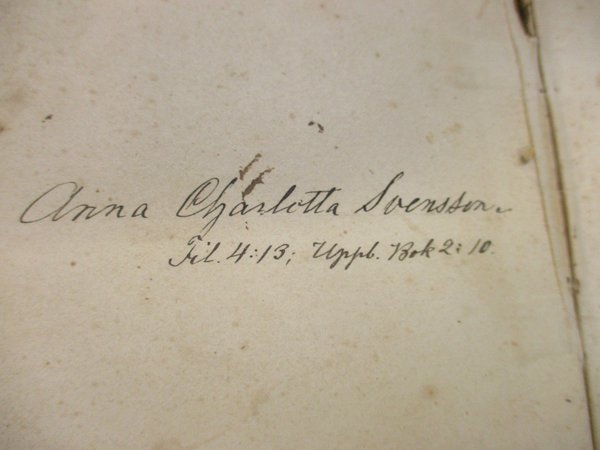 Anna Charlotta Svensson.
Fil. 4:13; Uppb. Bok 2:10.